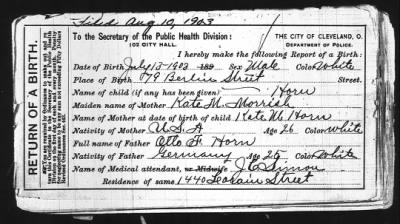 Filed Aug 10, 1903
RETURN OF A BIRTH.
To the Secretary of the Public Health Division:
102 CITY HALL.
THE CITY OF CLEVELAND, O.
DEPARTMENT OF POLICE.
I hereby make the following Report of a Birth:
Date of Birth July 13-1903 189 Sex Male Color White
Place of Birth 179 Berlin Street Street.
Name of child (if any has been given) Horn
Maiden name of Mother Kate M. Morrish
Name of Mother at date of birth of child Kate M Horn
Nativity of Mother U.S.A Age 26 Color White
Full name of Father Otto F Horn
Nativity of Father Germany Age 25 Color White
Name of Medical attendant, or Midwife J C Simon
Residence of same 1440 Street